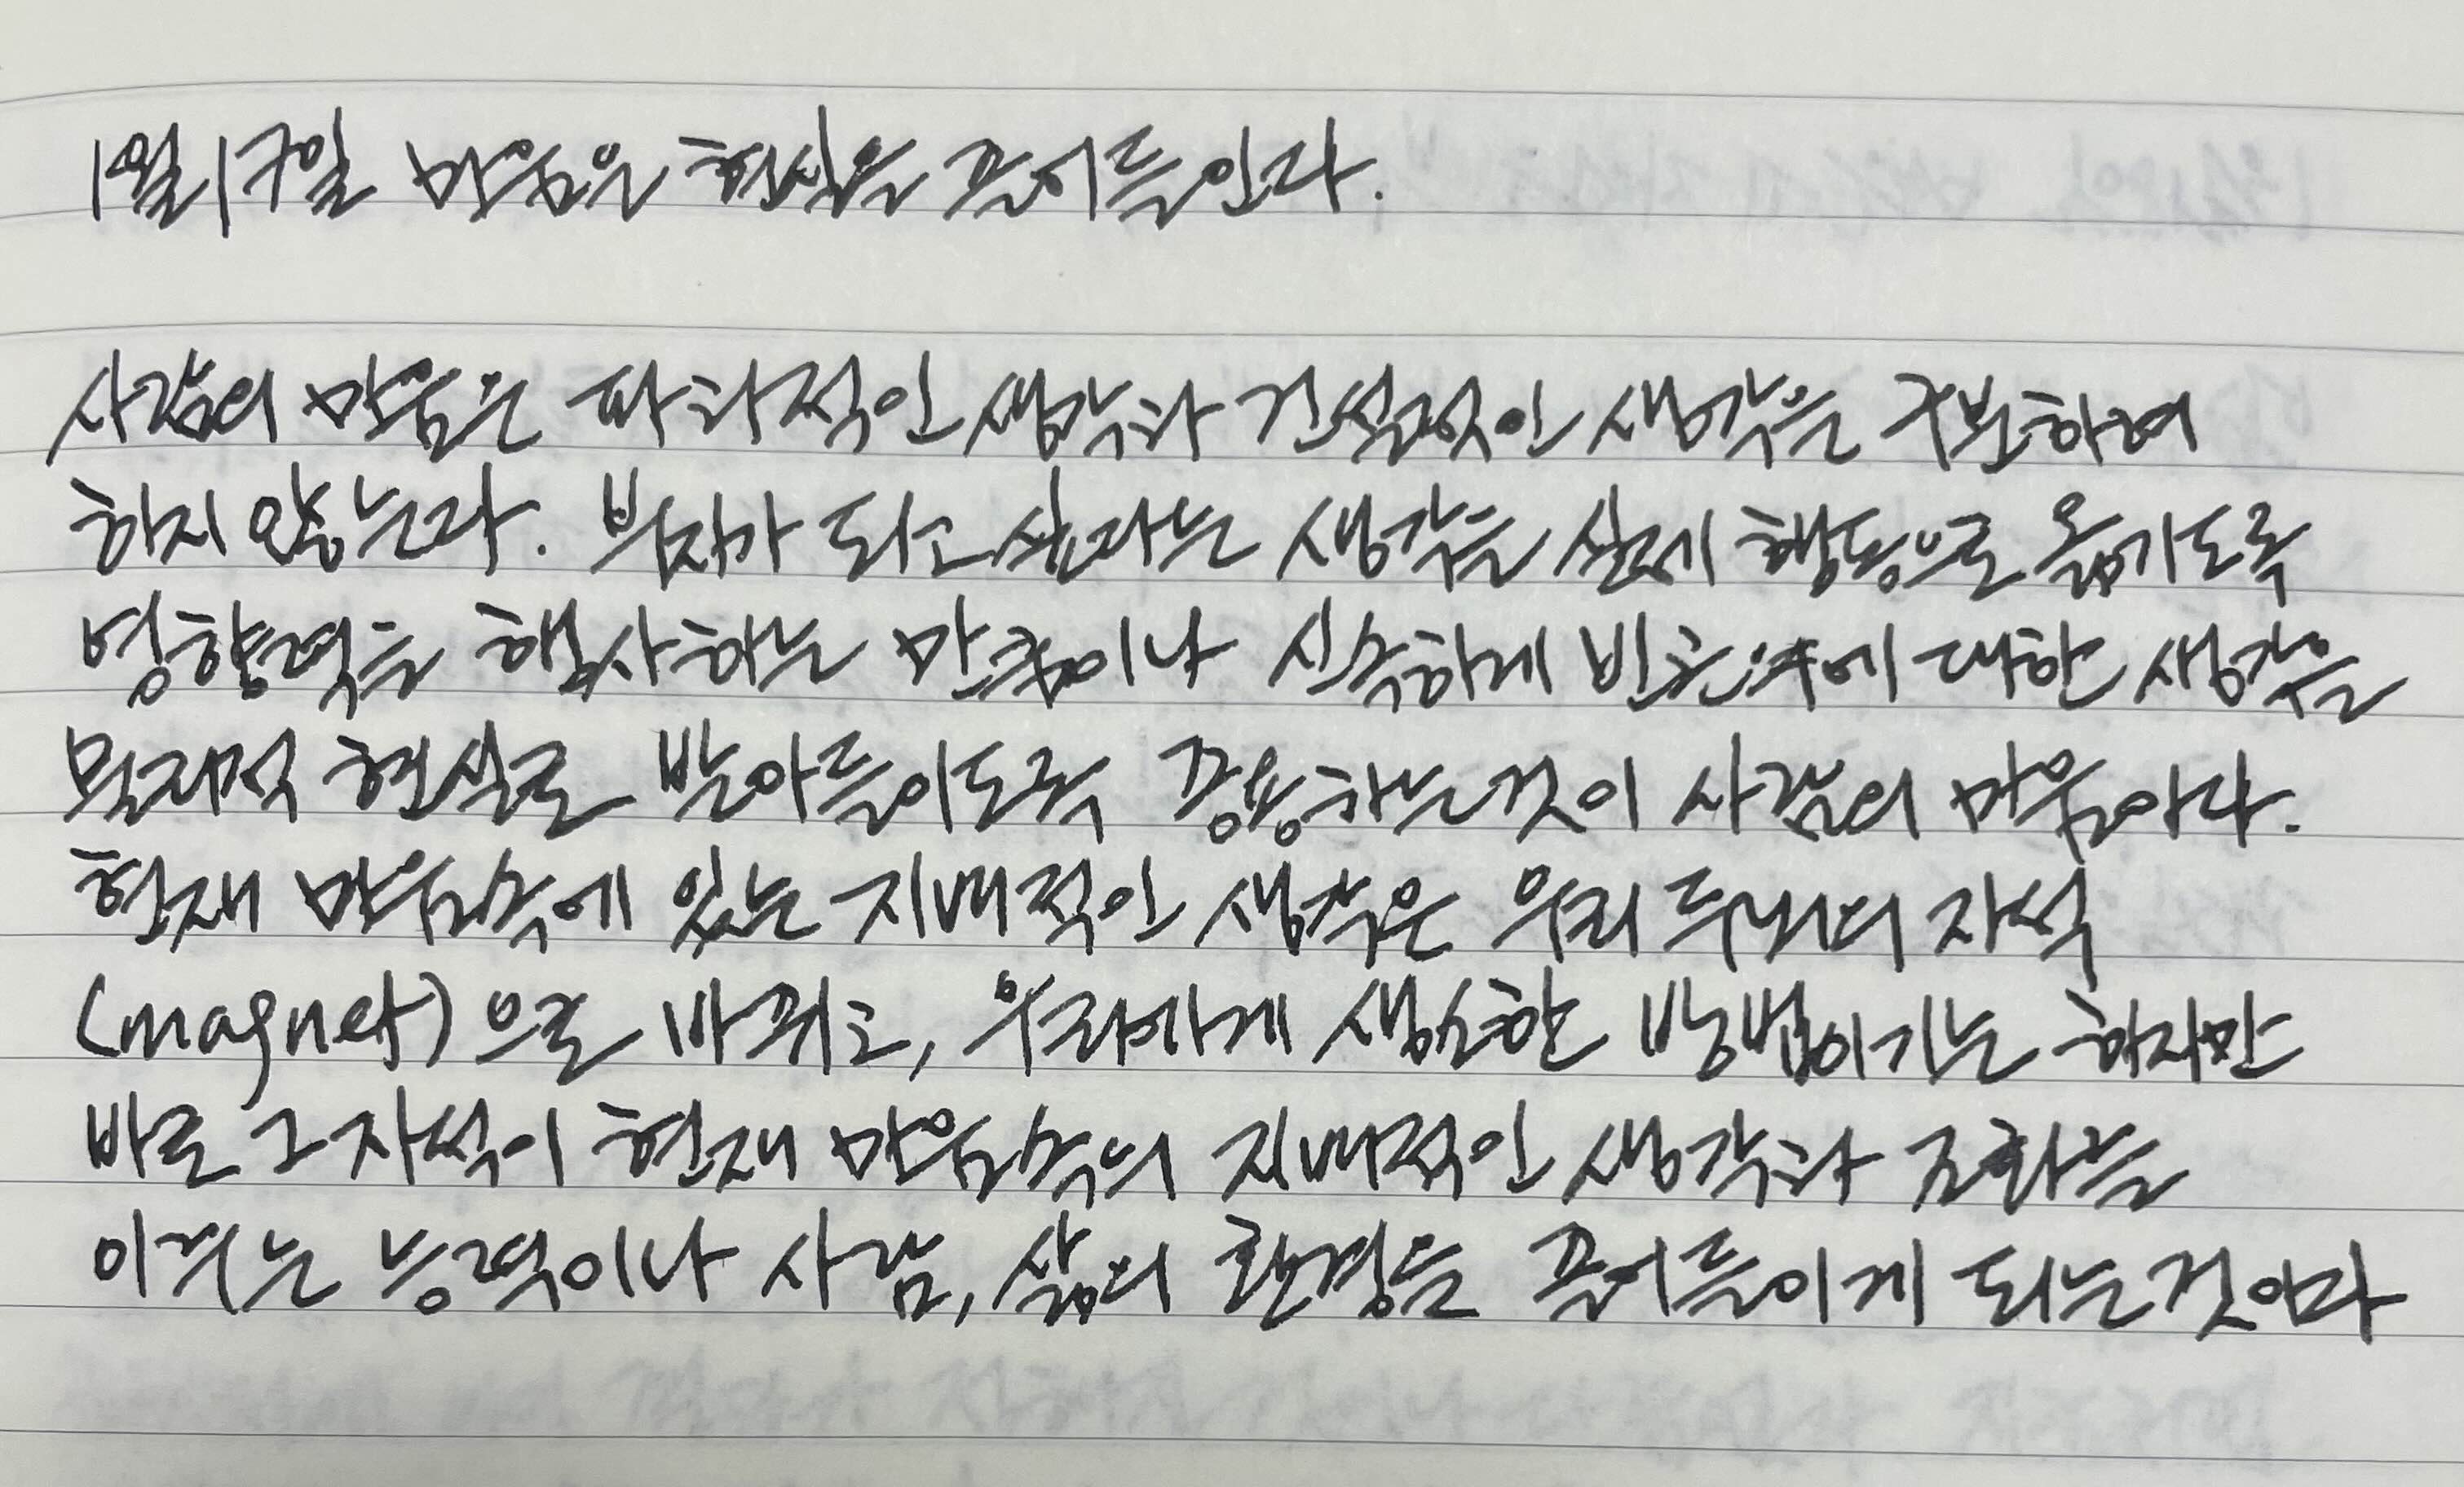 1월17일 마음은 현실을 끌어들인다.
사람의 마음은 파괴적인 생각과 건설적인 생각을 구분하려
하지 않는다. 부자가 되고 싶다는 생각을 실제 행동으로 옮기도록
영향력을 행사하는 만큼이나 신속하게 빈곤에 대한 생각을
물리적 현실로 받아들이도록 종용하는것이 사람의 마음이다.
현재 마음속에 있는 지배적인 생각은 우리 두뇌의 자석
(magnet)으로 바뀌고, 우리에게 생소한 방법이기는 하지만
바로 그 자석이 현재 마음속의 지배적인 생각과 조화를
이루는 능력이나 사람, 삶의 환경을 끌어들이게 되는것이다